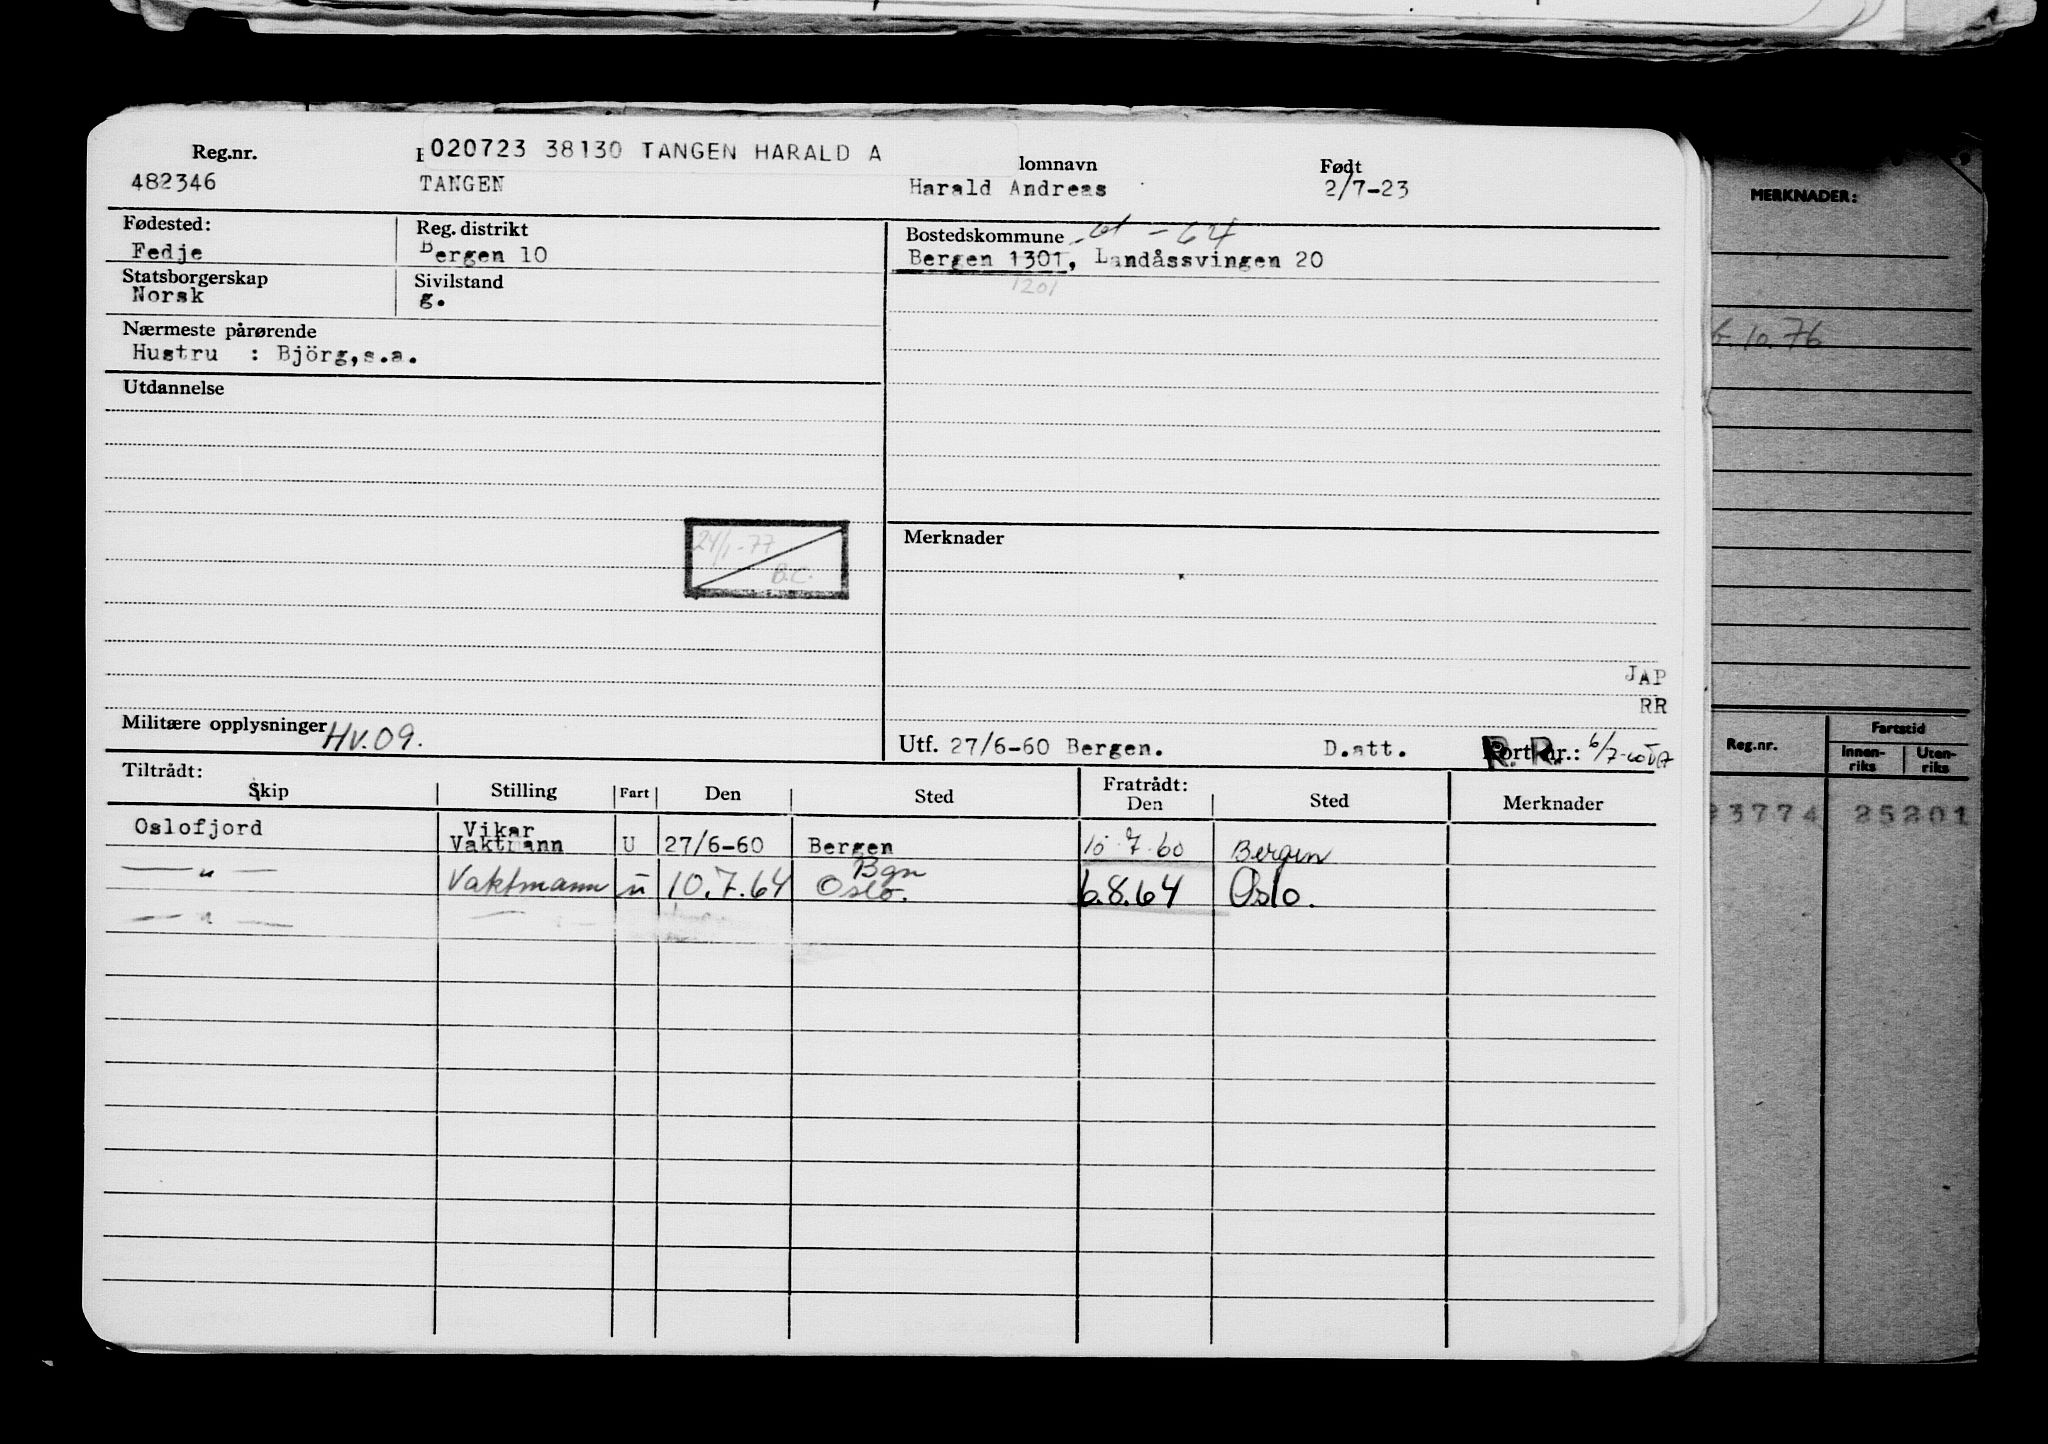 Reg.nr. 020723 38130 TANGEN HARALD A lomnavn Født
482346 TANGEN Harald Andreas 2/7-23
Fødested: Reg. distrikt Bostedskommune - 64
Fedje Bergen 10 Bergen 1301, Landåssvingen 20
Statsborgerskap Sivilstand 1201
Norsk g.
Nærmeste pårørende
Hustru : Björg,s.a.
Utdannelse
24/1-77
B.C.
Merknader
JAP
RR
Militære opplysninger HV.09.
Utf. 27/6-60 Bergen. D.att. R. R. nr.: 6/7-60
Tiltrådt: Fratrådt:
Skip Stilling Fart Den Sted Den Sted Merknader
Oslofjord Vikar
Vaktmann U 27/6-60 Bergen 10.7.60 Bergen
— " — Vaktmann u 10.7.64 Bgn
Oslo. 6.8.64 Oslo.
— " — —
MERKNADER:
10.76
Reg.nr. Fartstid
Innen-
riks Uten-
riks
3774 25201